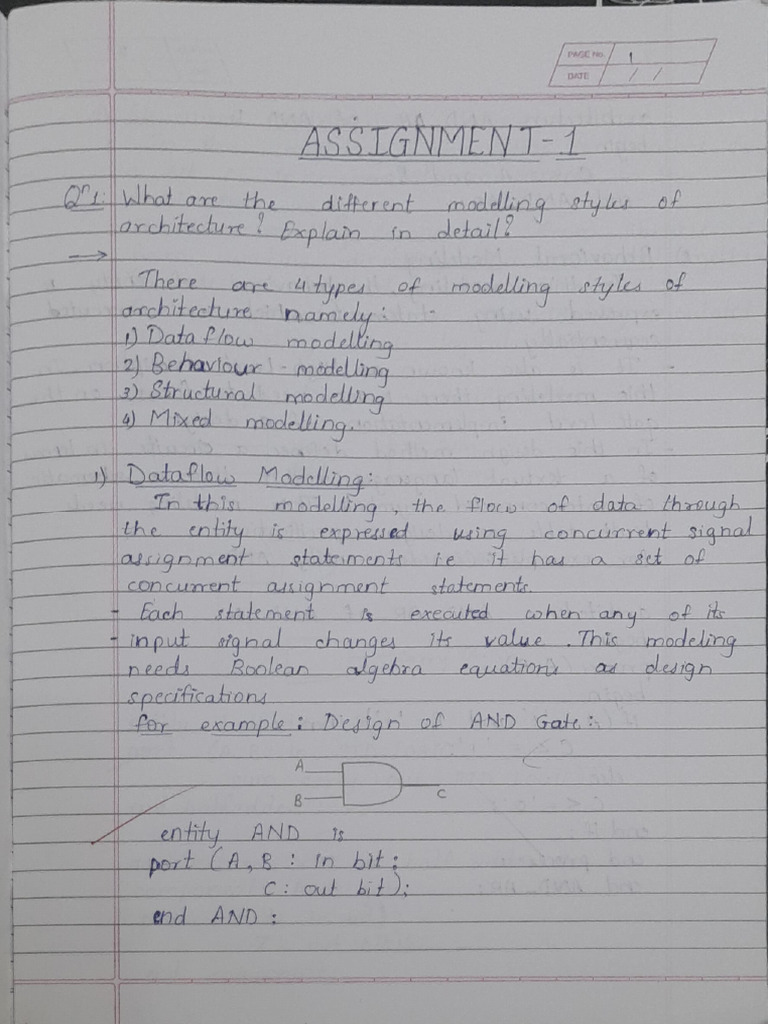 PAGE No. 1
DATE / /
ASSIGNMENT-1
Qn1: What are the different modelling styles of
architecture? Explain in detail?
→
There are 4 types of modelling styles of
architecture namely:
1) Dataflow modelling
2) Behaviour modelling
3) Structural modelling
4) Mixed modelling.
1) Dataflow Modelling:
In this modelling, the flow of data through
the entity is expressed using concurrent signal
assignment statements ie it has a set of
concurrent assignment statements.
- Each statement is executed when any of its
- input signal changes its value. This modeling
needs Boolean algebra equations as design
specifications
for example: Design of AND Gate:
A
B
C
entity AND is
port (A, B : in bit;
C: out bit);
end AND;